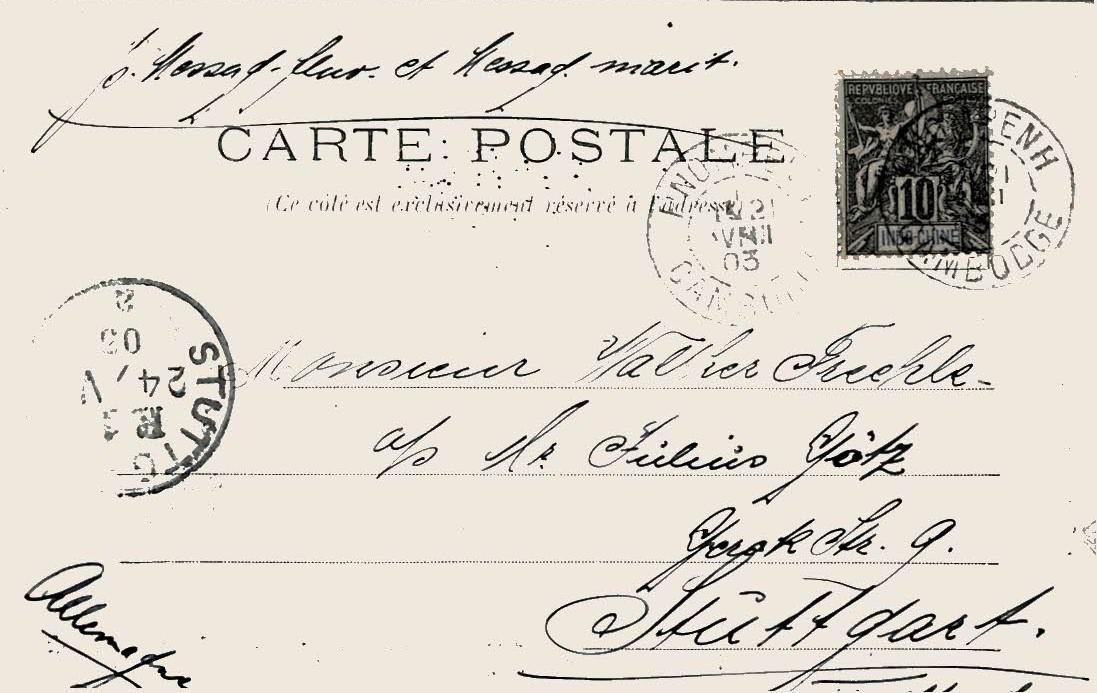 p. Messag. fluv. et Messag. marit.
CARTE POSTALE
(Ce côté est exclusivement réservé à l'adresse)
REPVBLIQVE FRANÇAISE
COLONIES
10
INDO-CHINE
PENH
CAMBODGE
21
03
CAMBODGE
STUTTG
24/V
03
2
Monsieur Walther Frechle
a/s Mr. Julius Götz
Gerok Str. 9.
Stuttgart.
Allemagne